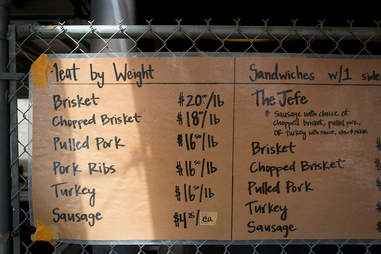 Meat by Weight
Brisket $20⁰⁰/lb
Chopped Brisket $18⁰⁰/lb
Pulled Pork $16⁵⁰/lb
Pork Ribs $16⁵⁰/lb
Turkey $16⁵⁰/lb
Sausage $4²⁵/ea
Sandwiches w/1 side
The Jefe
* Sausage with choice of
chopped brisket, pulled pork,
or turkey with
Brisket
Chopped Brisket
Pulled Pork
Turkey
Sausage